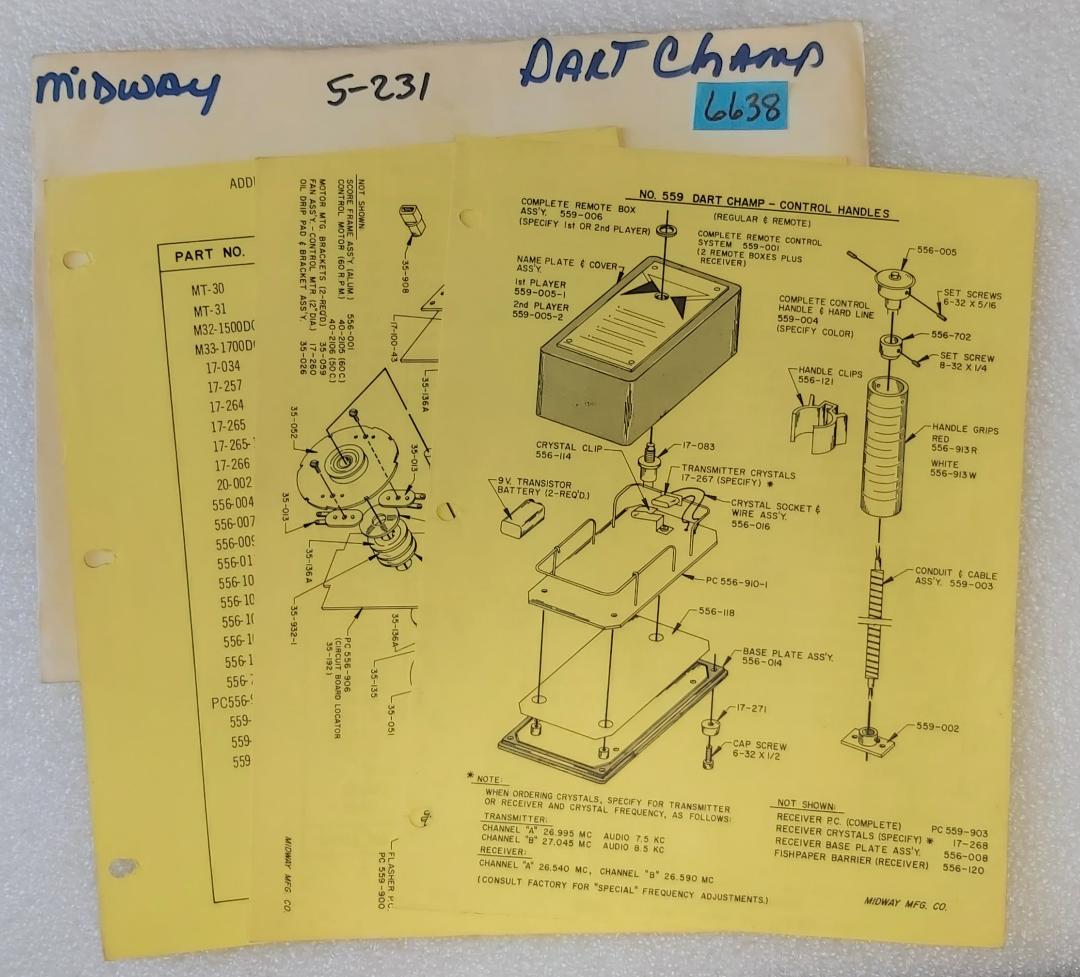 MIDWAY
5-231
DART CHAMP
6638
ADDI
PART NO.
MT-30
MT-31
M32-1500DC
M33-1700D
17-034
17-257
17-264
17-265
17-265-
17-266
20-002
556-004
556-007
556-009
556-01
556-10
556-10
556-10
556-1
556-1
556-7
PC556-9
559-
559-
559
NOT SHOWN:
SCORE FRAME ASS'Y. (ALUM.) 556-001
CONTROL MOTOR (60 R.P.M.) 40-2105 (60 C.)
40-2106 (50 C.)
MOTOR MTG. BRACKETS (2-REQ'D) 35-059
FAN ASS'Y.-CONTROL MTR. (2" DIA.) 17-260
OIL DRIP PAD & BRACKET ASS'Y. 35-026
35-908
17-100-43
35-136A
35-052
35-013
35-013
35-136A
35-932-1
PC 556-906
(CIRCUIT BOARD LOCATOR
35-192)
35-136A
35-135
35-051
FLASHER P.C.
PC 559-900
MIDWAY MFG. CO.
NO. 559 DART CHAMP - CONTROL HANDLES
(REGULAR & REMOTE)
COMPLETE REMOTE BOX
ASS'Y. 559-006
(SPECIFY 1st OR 2nd PLAYER)
COMPLETE REMOTE CONTROL
SYSTEM 559-001
(2 REMOTE BOXES PLUS
RECEIVER)
NAME PLATE & COVER
ASS'Y.
1st PLAYER
559-005-1
2nd PLAYER
559-005-2
556-005
SET SCREWS
6-32 X 5/16
COMPLETE CONTROL
HANDLE & HARD LINE
559-004
(SPECIFY COLOR)
556-702
SET SCREW
8-32 X 1/4
HANDLE CLIPS
556-121
HANDLE GRIPS
RED
556-913R
WHITE
556-913W
CRYSTAL CLIP
556-114
17-083
TRANSMITTER CRYSTALS
17-267 (SPECIFY) *
9V. TRANSISTOR
BATTERY (2-REQ'D.)
CRYSTAL SOCKET &
WIRE ASS'Y.
556-016
PC 556-910-1
CONDUIT & CABLE
ASS'Y. 559-003
556-118
BASE PLATE ASS'Y.
556-014
17-271
CAP SCREW
6-32 X 1/2
559-002
* NOTE:
WHEN ORDERING CRYSTALS, SPECIFY FOR TRANSMITTER
OR RECEIVER AND CRYSTAL FREQUENCY, AS FOLLOWS:
TRANSMITTER:
CHANNEL "A" 26.995 MC AUDIO 7.5 KC
CHANNEL "B" 27.045 MC AUDIO 8.5 KC
RECEIVER:
CHANNEL "A" 26.540 MC, CHANNEL "B" 26.590 MC
(CONSULT FACTORY FOR "SPECIAL" FREQUENCY ADJUSTMENTS.)
NOT SHOWN:
RECEIVER P.C. (COMPLETE) PC 559-903
RECEIVER CRYSTALS (SPECIFY) * 17-268
RECEIVER BASE PLATE ASS'Y. 556-008
FISHPAPER BARRIER (RECEIVER) 556-120
MIDWAY MFG. CO.